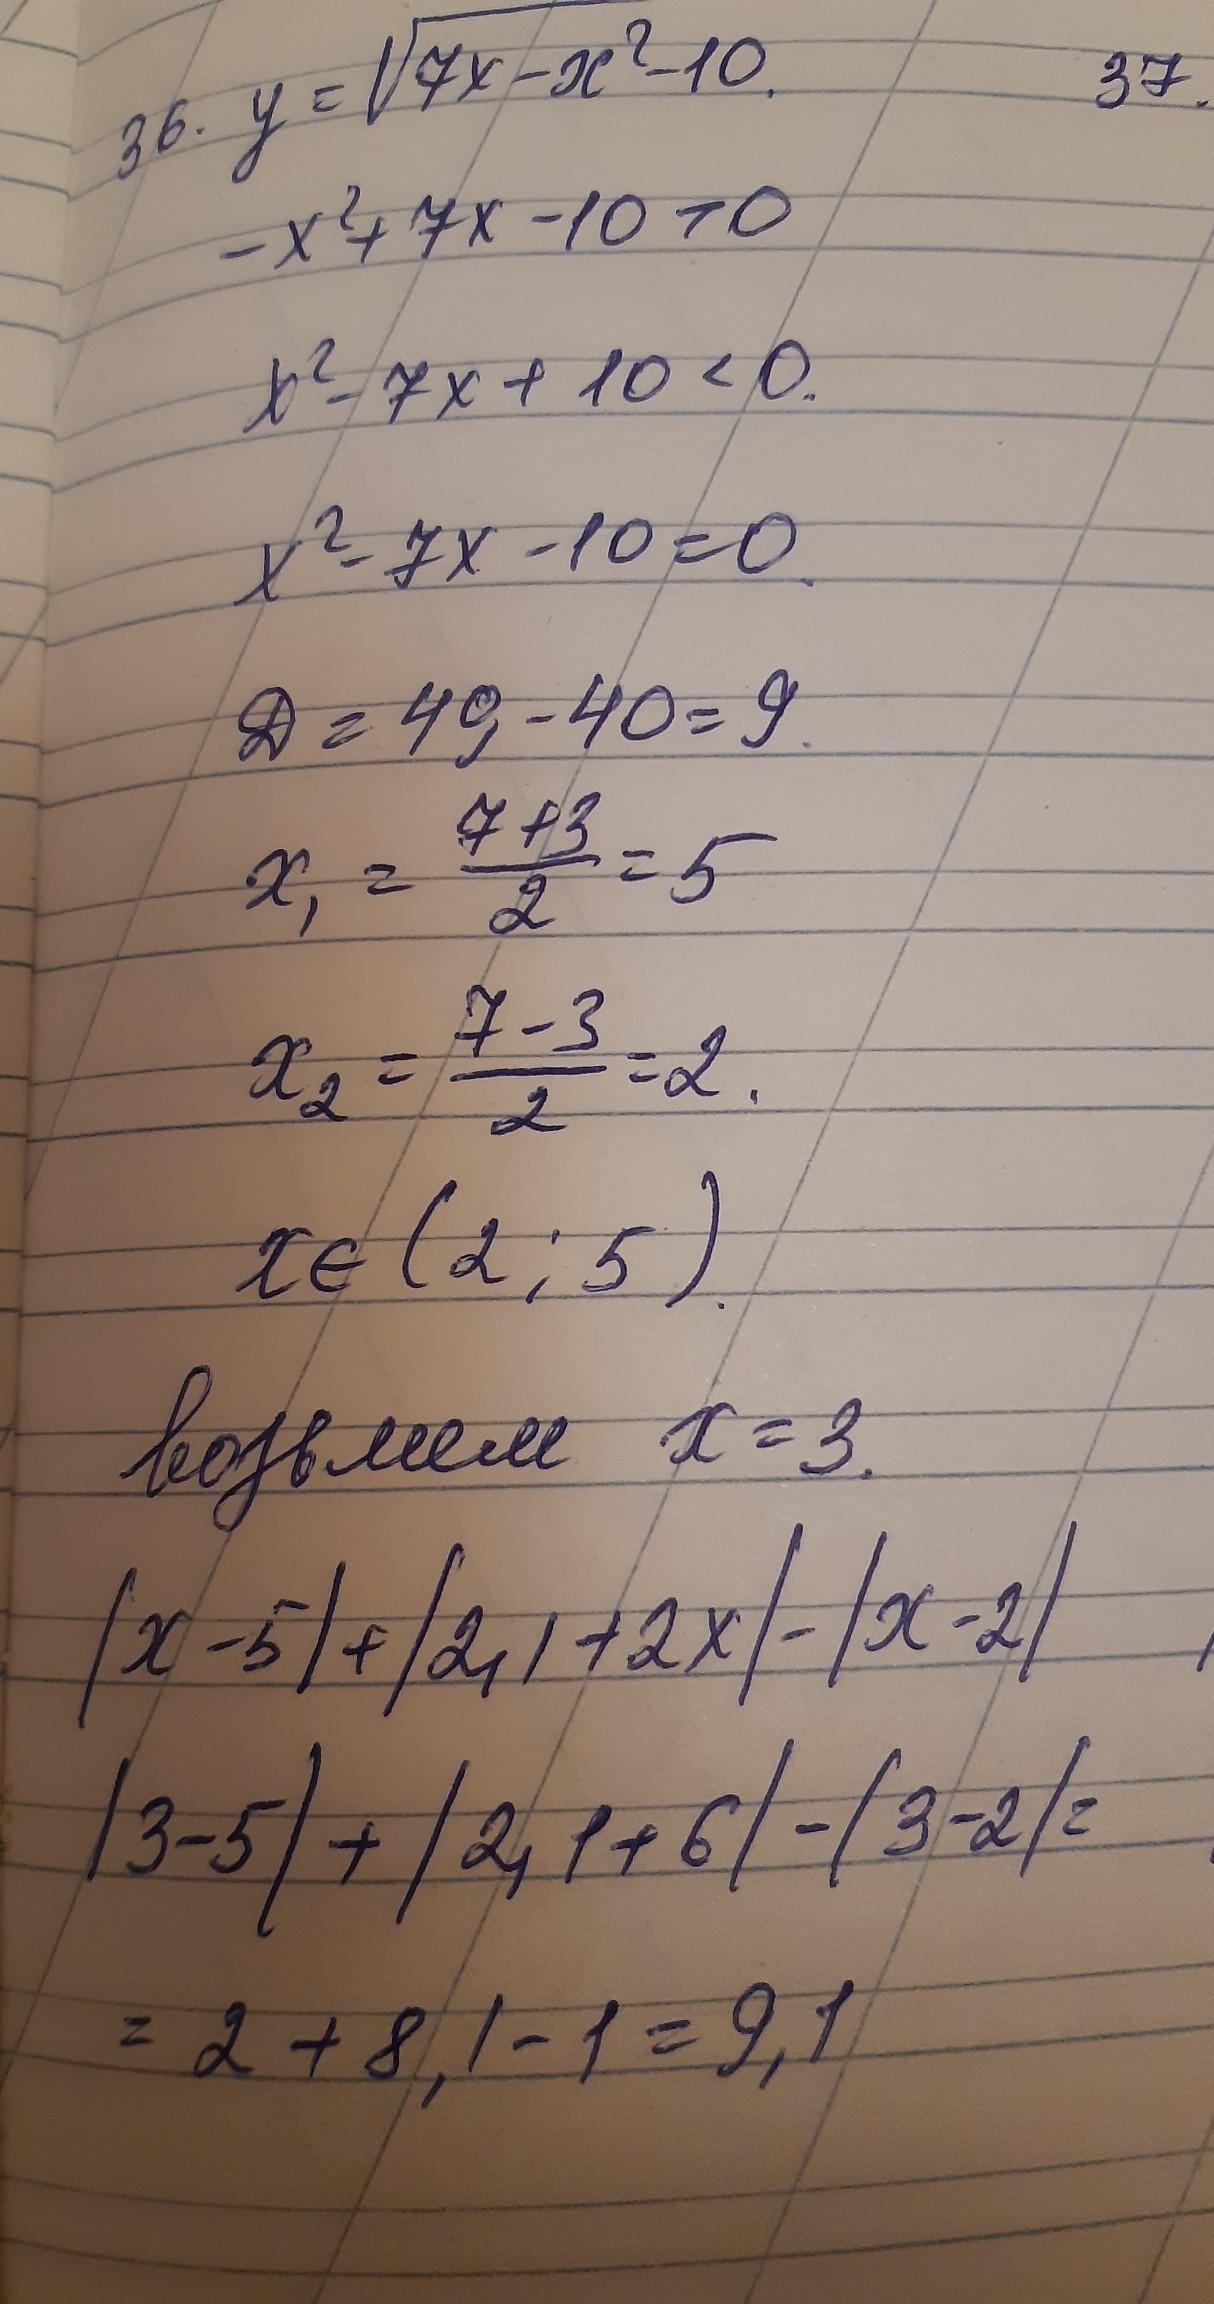 36. y = √7x - x² - 10. 37.
-x² + 7x - 10 > 0
x² - 7x + 10 < 0.
x² - 7x - 10 = 0.
D = 49 - 40 = 9.
x₁ = (7+3)/2 = 5
x₂ = (7-3)/2 = 2.
x ∈ (2; 5).
возьмем x = 3.
|x - 5| + |2,1 + 2x| - |x - 2|
|3 - 5| + |2,1 + 6| - |3 - 2| =
= 2 + 8,1 - 1 = 9,1